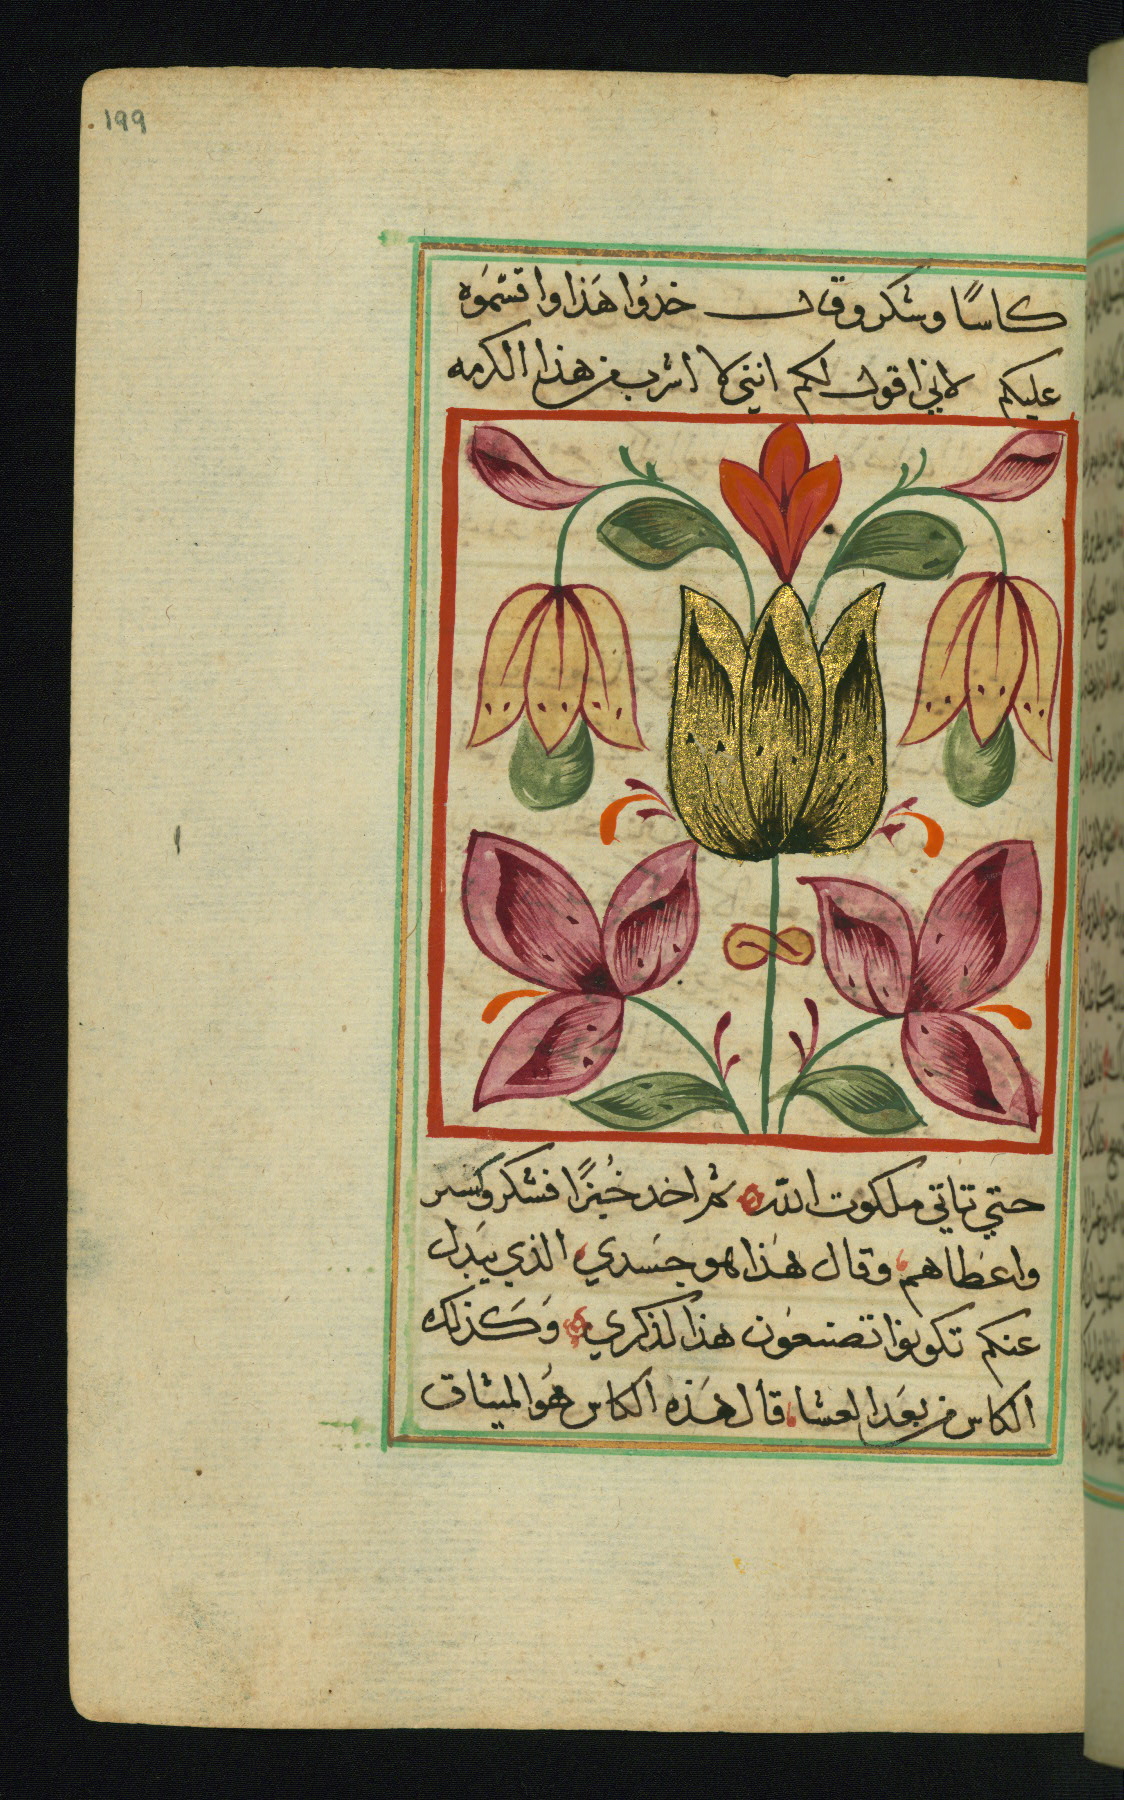 199
كاسًا وشكر وقال خدوا هَذا واقتسموَه
عليكم لاني اقول لكم انني لا اشرب من هذا الكرمه
حتي تاتي ملكوت الله ثم اخد خُبزًا فشكر وكسر
واعَطاهم وقال هَذا هو جسَدي الذي يبَدل
عنكم تكونوا تصنعَون هذا لذكري وَكَذلك
الكاس من بعَد العشا قال هَذه الكاس هوَ الميثاق